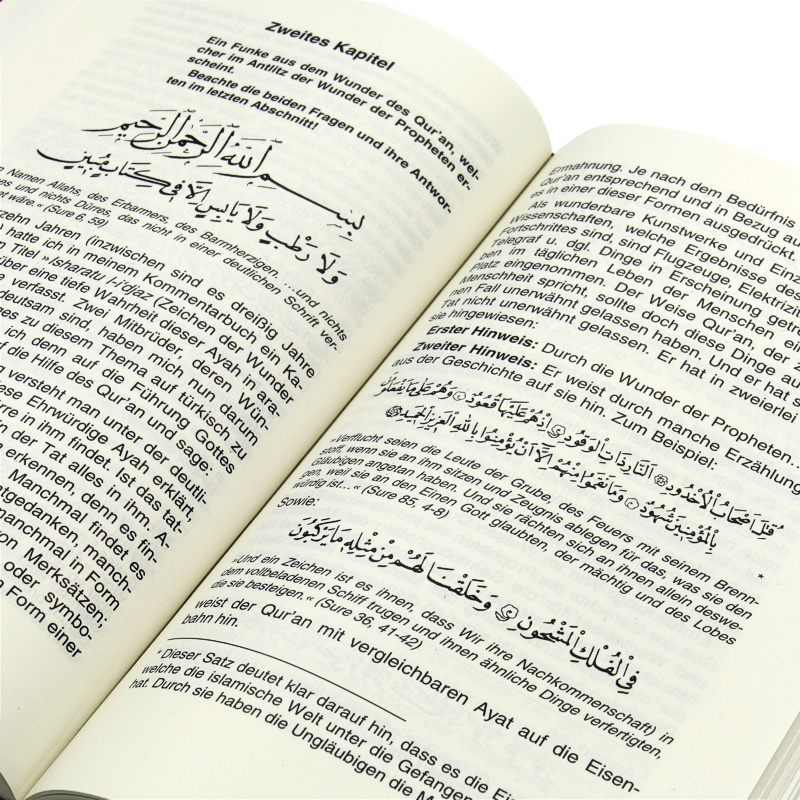 Zweites Kapitel
Ein Funke aus dem Wunder des Qur'an, wel-
cher im Antlitz der Wunder der Propheten er-
scheint.
Beachte die beiden Fragen und ihre Antwor-
ten im letzten Abschnitt!
بِسْمِ اللَّهِ الرَّحْمَنِ الرَّحِيمِ
وَلَا رَطْبٍ وَلَا يَابِسٍ اِلَّا فِى كِتَابٍ مُبِينٍ
Namen Allahs, des Erbarmers, des Barmherzigen. ...und nichts
und nichts Dürres, das nicht in einer deutlichen Schrift ver-
wäre.« (Sure 6, 59)
zehn Jahren (inzwischen sind es dreißig Jahre
hatte ich in meinem Kommentarbuch, ein Ka-
Titel »Isharatu l-i'djaz (Zeichen der Wunder
über eine tiefe Wahrheit dieser Ayah in ara-
verfasst. Zwei Mitbrüder, deren Wün-
deutsam sind, haben mich nun darum
zu diesem Thema auf türkisch zu
ich denn auf die Führung Gottes
auf die Hilfe des Qur'an und sage:
versteht man unter der deutli-
Ehrwürdige Ayah erklärt,
in ihm findet. Ist das tat-
der Tat alles in ihm. A-
erkennen, denn es fin
Manchmal findet es
ntgedanken, manch-
manchmal in Form
Merksätzen;
oder symbo-
Form einer
Ermahnung. Je nach dem Bedürfnis
Qur'an entsprechend und in Bezug au
es in einer dieser Formen ausgedrückt.
Als wunderbare Kunstwerke und Einz
Wissenschaften, welche Ergebnisse des
Fortschrittes sind, sind Flugzeuge, Elektrizit
Telegraf u. dgl. Dinge in Erscheinung getr
im täglichen Leben der Menschen ein
Platz eingenommen. Der Weise Qur'an, der z
Menschheit spricht, sollte doch diese Dinge au
nen Fall unerwähnt gelassen haben. Und er hat s
Tat nicht unerwähnt gelassen. Er hat in zweierlei
sie hingewiesen:
Erster Hinweis: Durch die Wunder der Propheten...
Zweiter Hinweis: Er weist durch manche Erzählung
aus der Geschichte auf sie hin. Zum Beispiel:
قُتِلَ اَصْحَابُ الْاُخْدُودِ اَلنَّارِ ذَاتِ الْوَقُودِ اِذْ هُمْ عَلَيْهَا قُعُودٌ وَهُمْ عَلَى مَا يَفْعَلُونَ
بِالْمُؤْمِنِينَ شُهُودٌ وَمَا نَقَمُوا مِنْهُمْ اِلَّا اَنْ يُؤْمِنُوا بِاللَّهِ الْعَزِيزِ الْحَمِيدِ
»Verflucht seien die Leute der Grube, des Feuers mit seinem Brenn-
stoff, wenn sie an ihm sitzen und Zeugnis ablegen für das, was sie den
Gläubigen angetan haben. Und sie rächten sich an ihnen allein deswe-
gen, weil sie an den Einen Gott glaubten, der mächtig und des Lobes
würdig ist...« (Sure 85, 4-8)
Sowie:
فِى الْفُلْكِ الْمَشْحُونِ وَخَلَقْنَا لَهُمْ مِنْ مِثْلِهِ مَا يَرْكَبُونَ *
»Und ein Zeichen ist es ihnen, dass Wir ihre Nachkommenschaft) in
dem vollbeladenen Schiff trugen und ihnen ähnliche Dinge verfertigten,
die sie besteigen.« (Sure 36, 41-42)
weist der Qur'an mit vergleichbaren Ayat auf die Eisen-
bahn hin.
* Dieser Satz deutet klar darauf hin, dass es die Ei
welche die islamische Welt unter die Gefangen
hat. Durch sie haben die Ungläubigen die M